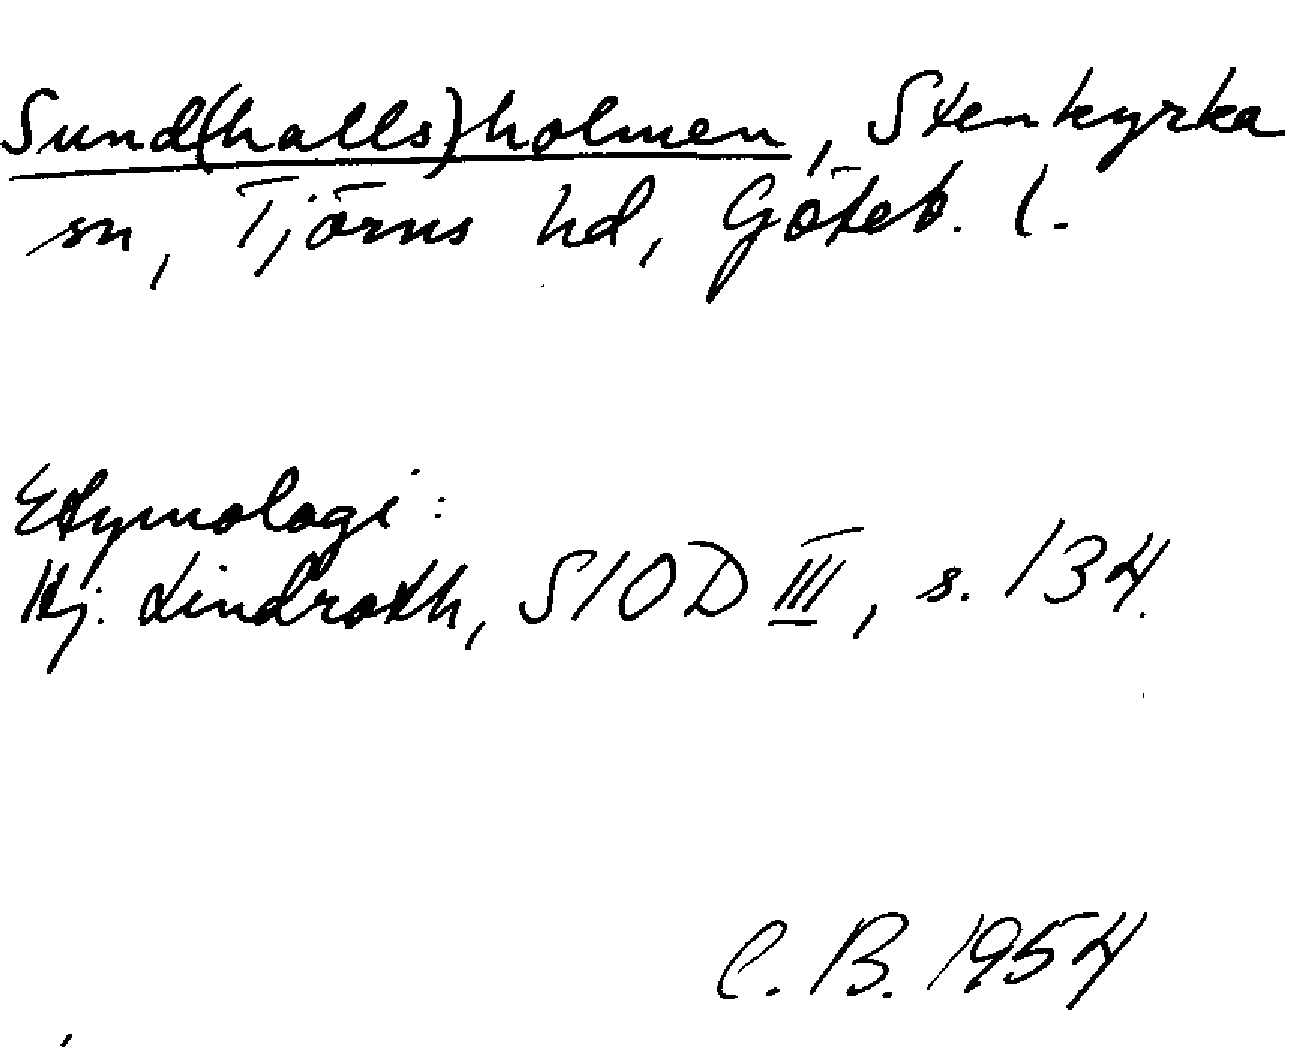 Sund(halls)holmen, Stenkyrka
sn, Tjörns hd, Göteb. l.
Etymologi:
Hj. Lindroth, SIOD III, s. 134.
C. B. 1954